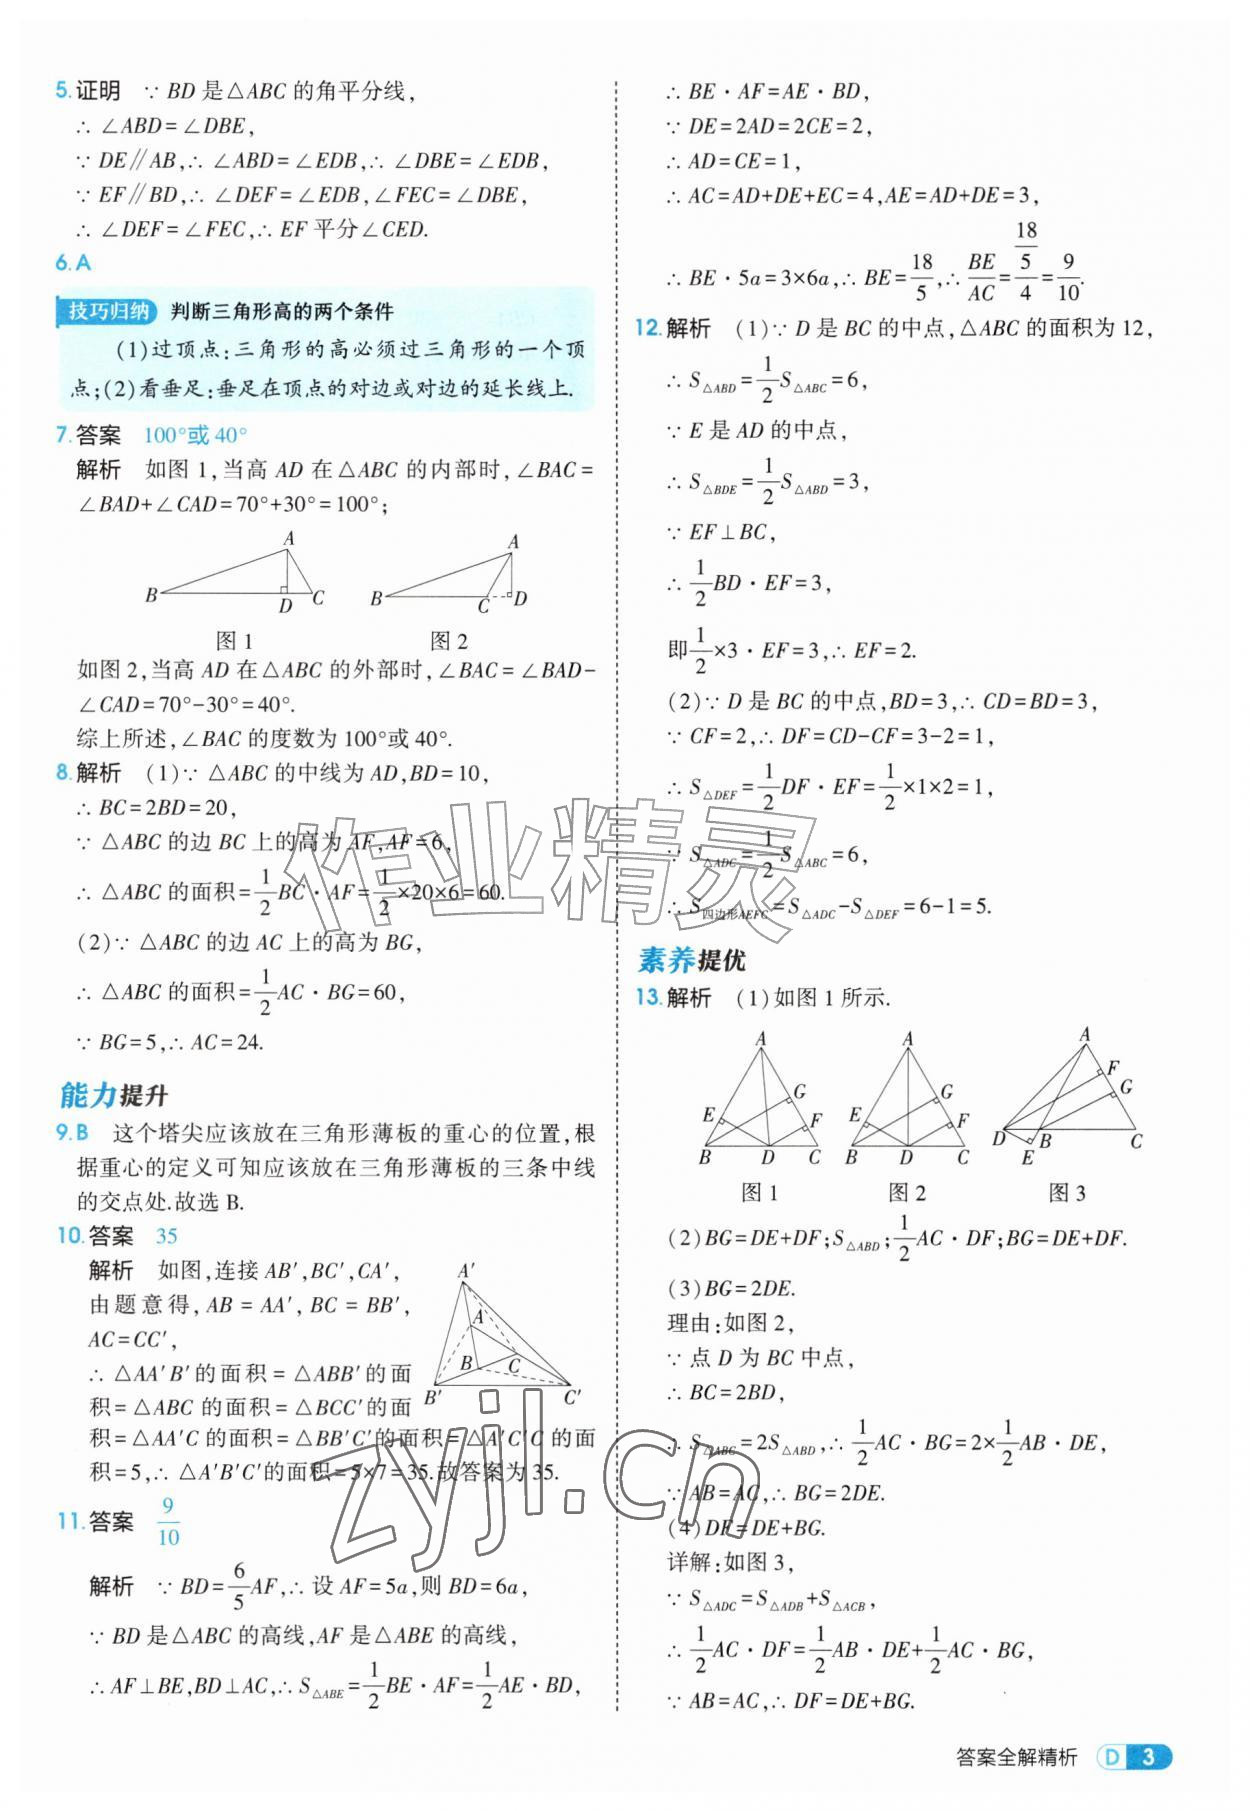 5.证明 ∵ BD是△ABC的角平分线,
∴ ∠ABD=∠DBE,
∵ DE∥AB,∴ ∠ABD=∠EDB,∴ ∠DBE=∠EDB,
∵ EF∥BD,∴ ∠DEF=∠EDB,∠FEC=∠DBE,
∴ ∠DEF=∠FEC,∴ EF平分∠CED.
6.A
技巧归纳 判断三角形高的两个条件
(1)过顶点:三角形的高必须过三角形的一个顶
点;(2)看垂足:垂足在顶点的对边或对边的延长线上.
7.答案 100°或40°
解析 如图1,当高AD在△ABC的内部时,∠BAC=
∠BAD+∠CAD=70°+30°=100°;
A
B
D
C
图1
A
B
C
D
图2
如图2,当高AD在△ABC的外部时,∠BAC=∠BAD-
∠CAD=70°-30°=40°.
综上所述,∠BAC的度数为100°或40°.
8.解析 (1)∵ △ABC的中线为AD,BD=10,
∴ BC=2BD=20,
∵ △ABC的边BC上的高为AF,AF=6,
∴ △ABC的面积=1/2BC·AF=1/2×20×6=60.
(2)∵ △ABC的边AC上的高为BG,
∴ △ABC的面积=1/2AC·BG=60,
∵ BG=5,∴ AC=24.
能力提升
9.B 这个塔尖应该放在三角形薄板的重心的位置,根
据重心的定义可知应该放在三角形薄板的三条中线
的交点处.故选B.
10.答案 35
解析 如图,连接AB′,BC′,CA′,
由题意得,AB=AA′,BC=BB′,
AC=CC′,
∴ △AA′B′的面积=△ABB′的面
积=△ABC的面积=△BCC′的面
积=△AA′C的面积=△BB′C′的面积=△A′C′C的面
积=5,∴ △A′B′C′的面积=5×7=35.故答案为35.
A′
A
B
C
B′
C′
11.答案 9/10
解析 ∵ BD=6/5AF,∴ 设AF=5a,则BD=6a,
∵ BD是△ABC的高线,AF是△ABE的高线,
∴ AF⊥BE,BD⊥AC,∴ S△ABE=1/2BE·AF=1/2AE·BD,
∴ BE·AF=AE·BD,
∵ DE=2AD=2CE=2,
∴ AD=CE=1,
∴ AC=AD+DE+EC=4,AE=AD+DE=3,
∴ BE·5a=3×6a,∴ BE=18/5,∴ BE/AC=(18/5)/4=9/10.
12.解析 (1)∵ D是BC的中点,△ABC的面积为12,
∴ S△ABD=1/2S△ABC=6,
∵ E是AD的中点,
∴ S△BDE=1/2S△ABD=3,
∵ EF⊥BC,
∴ 1/2BD·EF=3,
即1/2×3·EF=3,∴ EF=2.
(2)∵ D是BC的中点,BD=3,∴ CD=BD=3,
∵ CF=2,∴ DF=CD-CF=3-2=1,
∴ S△DEF=1/2DF·EF=1/2×1×2=1,
∵ S△ADC=1/2S△ABC=6,
∴ S四边形AEFC=S△ADC-S△DEF=6-1=5.
素养提优
13.解析 (1)如图1所示.
A
G
E
F
B
D
C
图1
A
G
E
F
B
D
C
图2
A
F
G
D
B
C
E
图3
(2)BG=DE+DF;S△ABD;1/2AC·DF;BG=DE+DF.
(3)BG=2DE.
理由:如图2,
∵ 点D为BC中点,
∴ BC=2BD,
∴ S△ABC=2S△ABD,∴ 1/2AC·BG=2×1/2AB·DE,
∵ AB=AC,∴ BG=2DE.
(4)DF=DE+BG.
详解:如图3,
∵ S△ADC=S△ADB+S△ACB,
∴ 1/2AC·DF=1/2AB·DE+1/2AC·BG,
∵ AB=AC,∴ DF=DE+BG.
作业精灵
zyjl.cn
答案全解精析 D 3